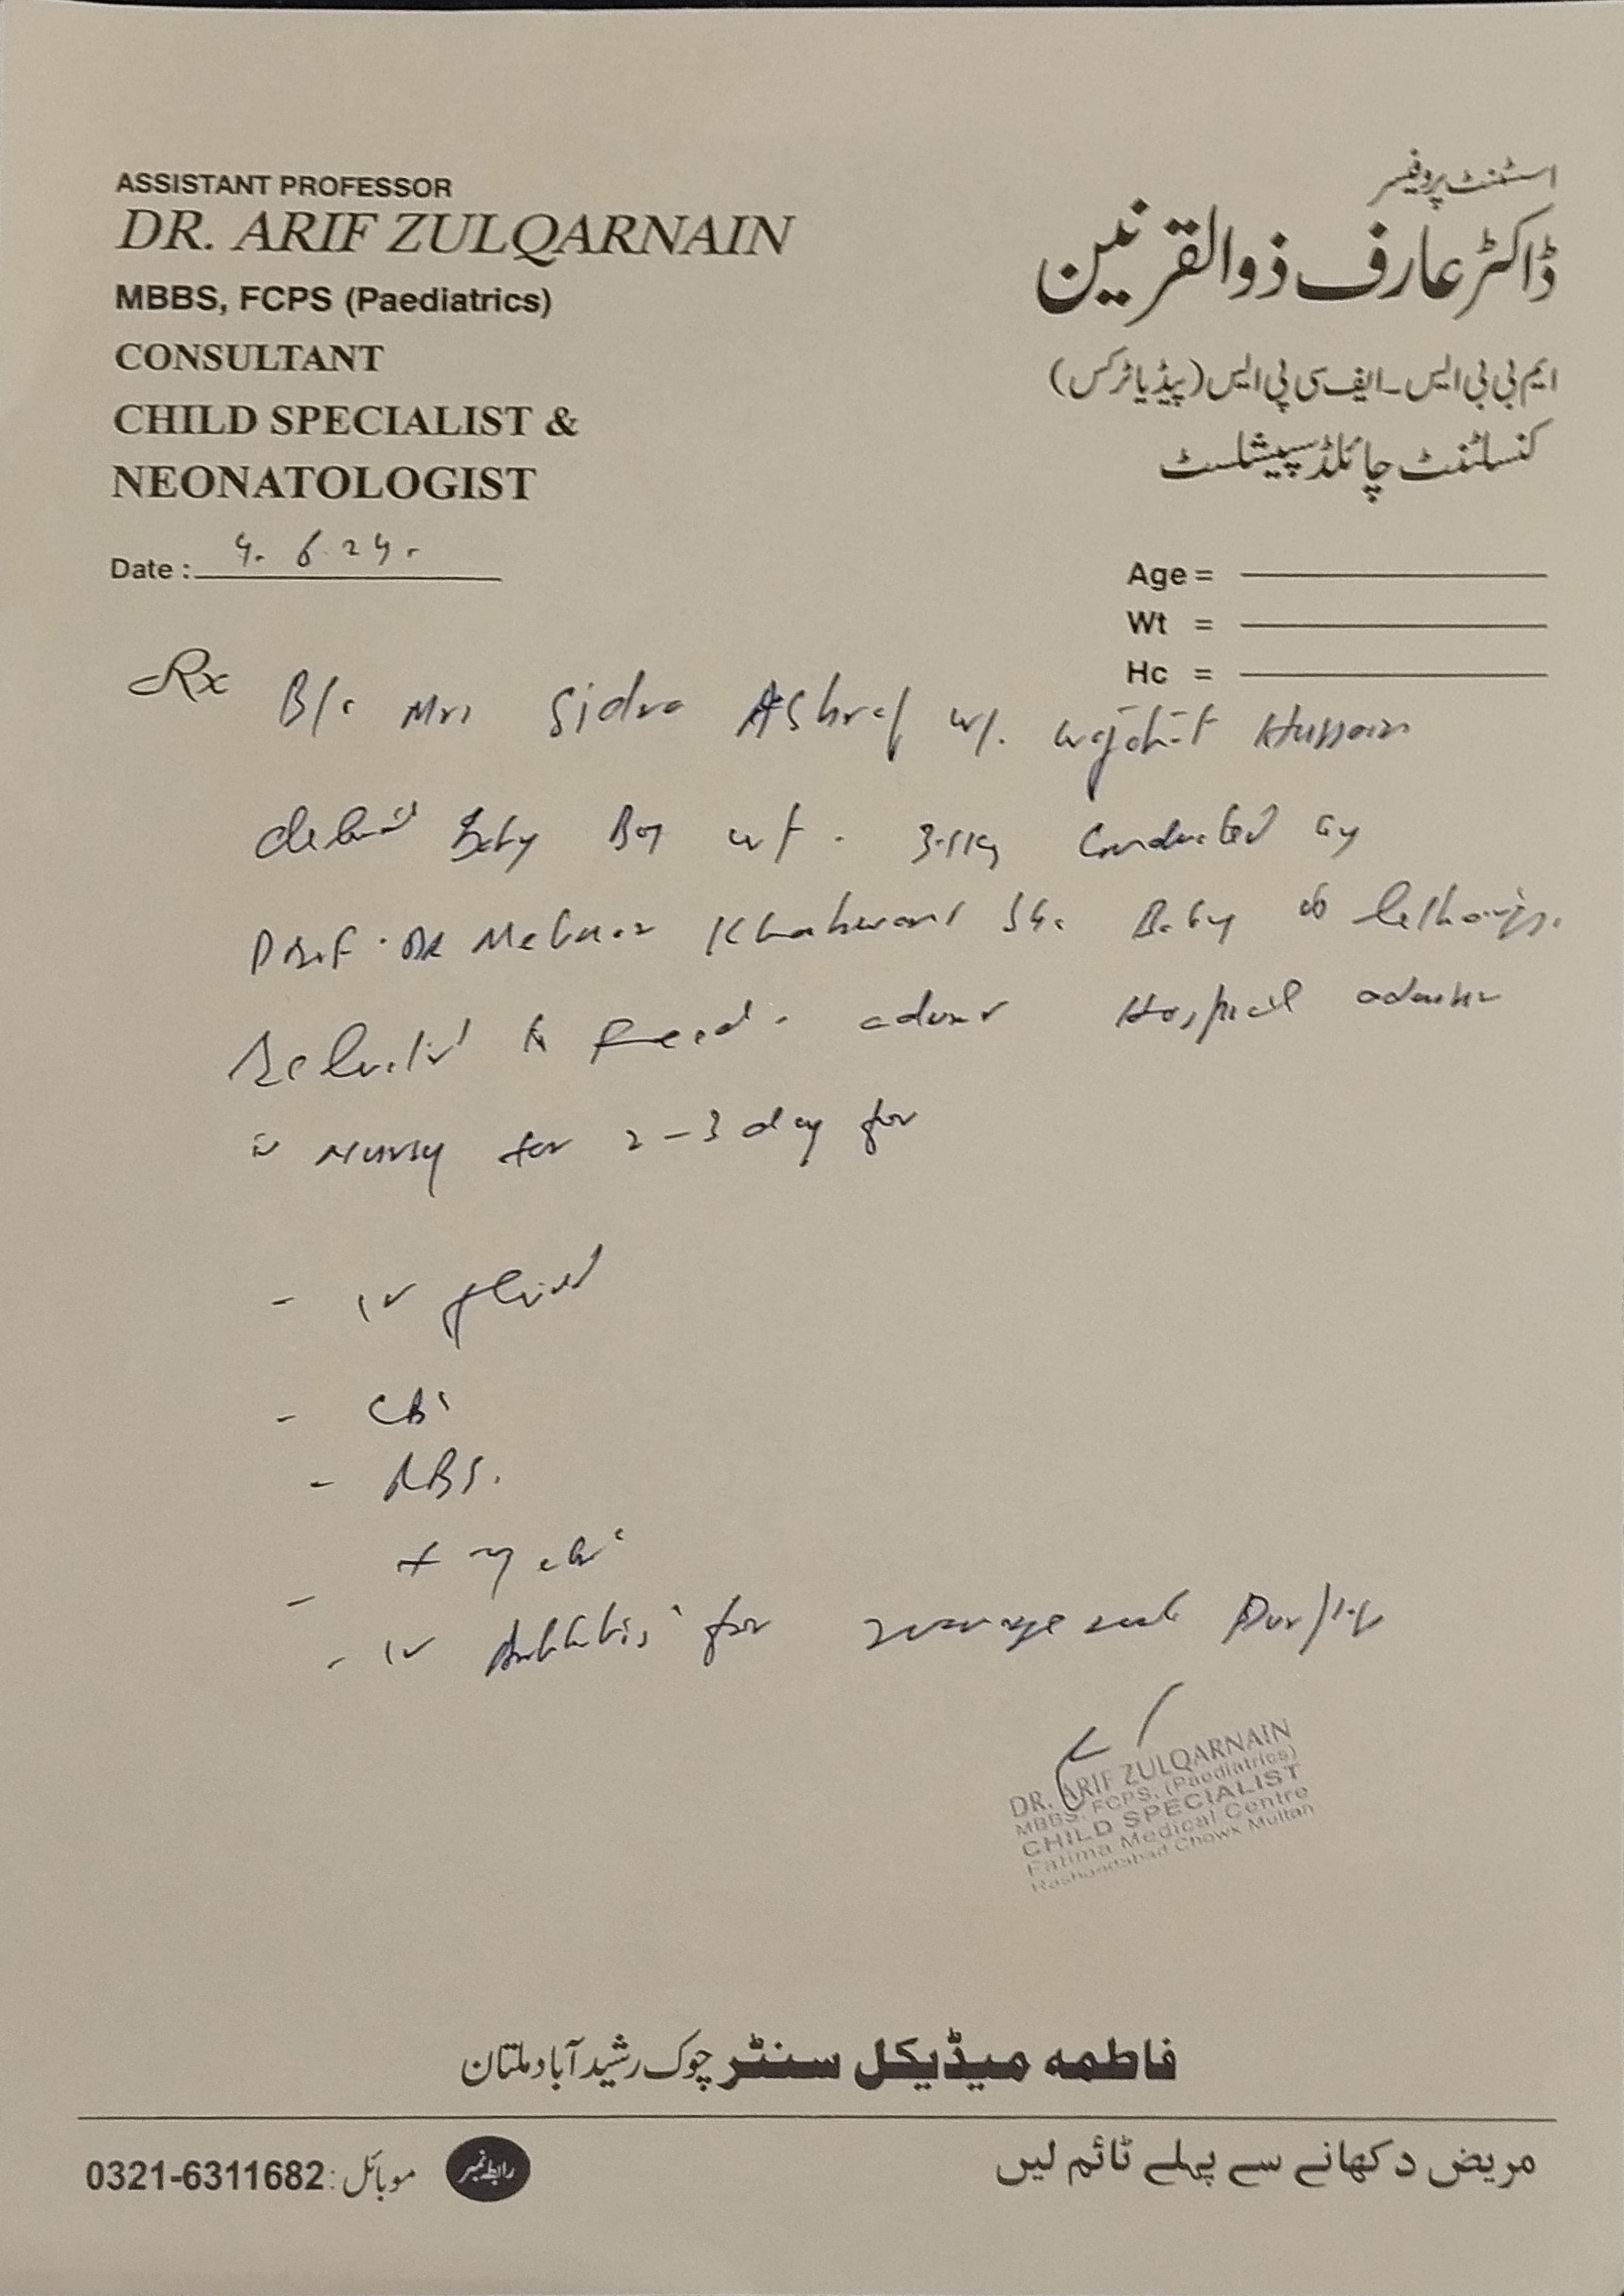 ASSISTANT PROFESSOR
DR. ARIF ZULQARNAIN
MBBS, FCPS (Paediatrics)
CONSULTANT
CHILD SPECIALIST &
NEONATOLOGIST
اسسٹنٹ پروفیسر
ڈاکٹر عارف ذوالقرنین
ایم بی بی ایس ۔ ایف سی پی ایس (پیڈیاٹرکس)
کنسلٹنٹ چائلڈ سپیشلسٹ
Date : 4. 6. 24.
Age =
Wt =
Hc =
Rx B/o Mrs Sidra Ashraf w/o Wajahat Hussain
Baby Boy wt. conducted by
Prof. Dr Khakwani Baby is
to feed. advice Hospital
in for 2 - 3 day for
- IV fluid
- CBC
- RBS.
-
- IV for
DR. ARIF ZULQARNAIN
MBBS, FCPS, (Paediatrics)
CHILD SPECIALIST
Fatima Medical Centre
Rasheedabad Chowk Multan
فاطمہ میڈیکل سنٹر چوک رشید آباد ملتان
مریض دکھانے سے پہلے ٹائم لیں
رابطہ نمبر
موبائل: 0321-6311682